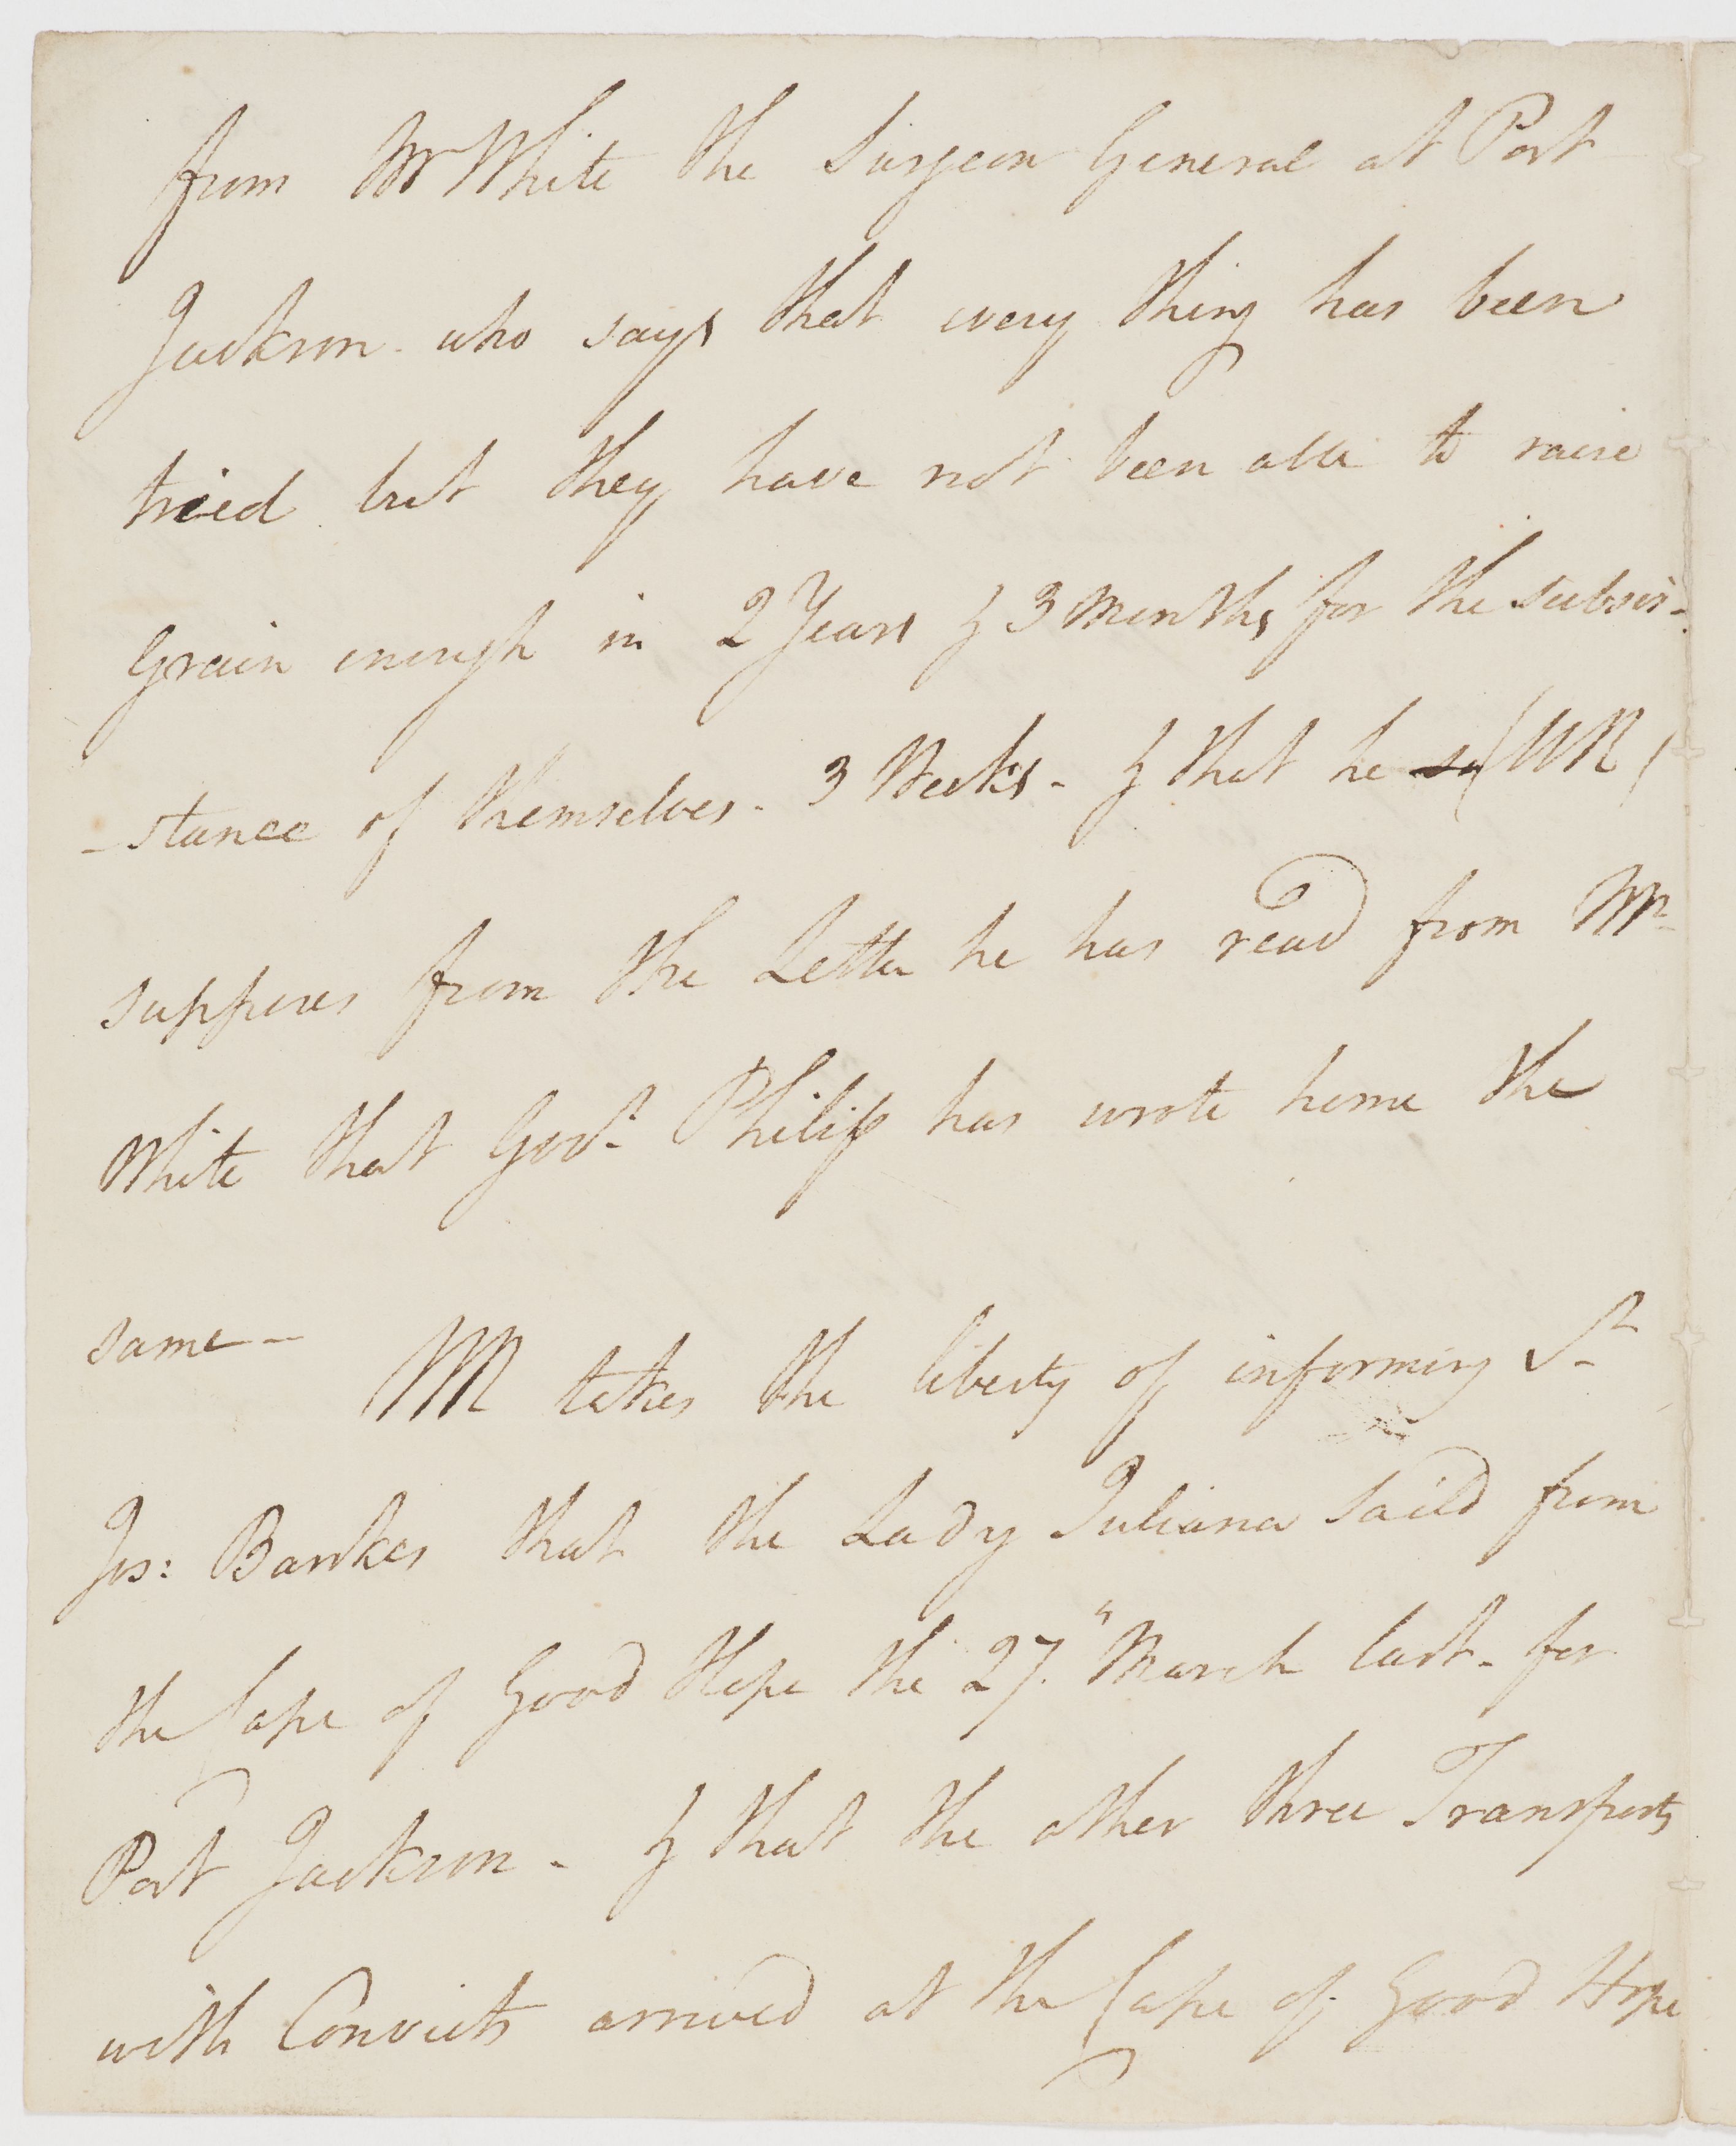 from Mr White the Surgeon General at Port
Jackson - who says that every thing has been
tried but they have not been able to raise
Grain enough in 2 Years & 3 Months for the subsis-
-stance of themselves - 3 Weeks - & that he so (WR)
supposes from the Letter he has read from Mr
White that Govr Philip has wrote home the
same -
WR takes the liberty of informing Sr
Jos: Bankes that the Lady Juliana Saild from
the Cape of Good Hope the 27." March last - for
Port Jackson - & that the other three Transports
with Convicts arrived at the Cape of Good Hope